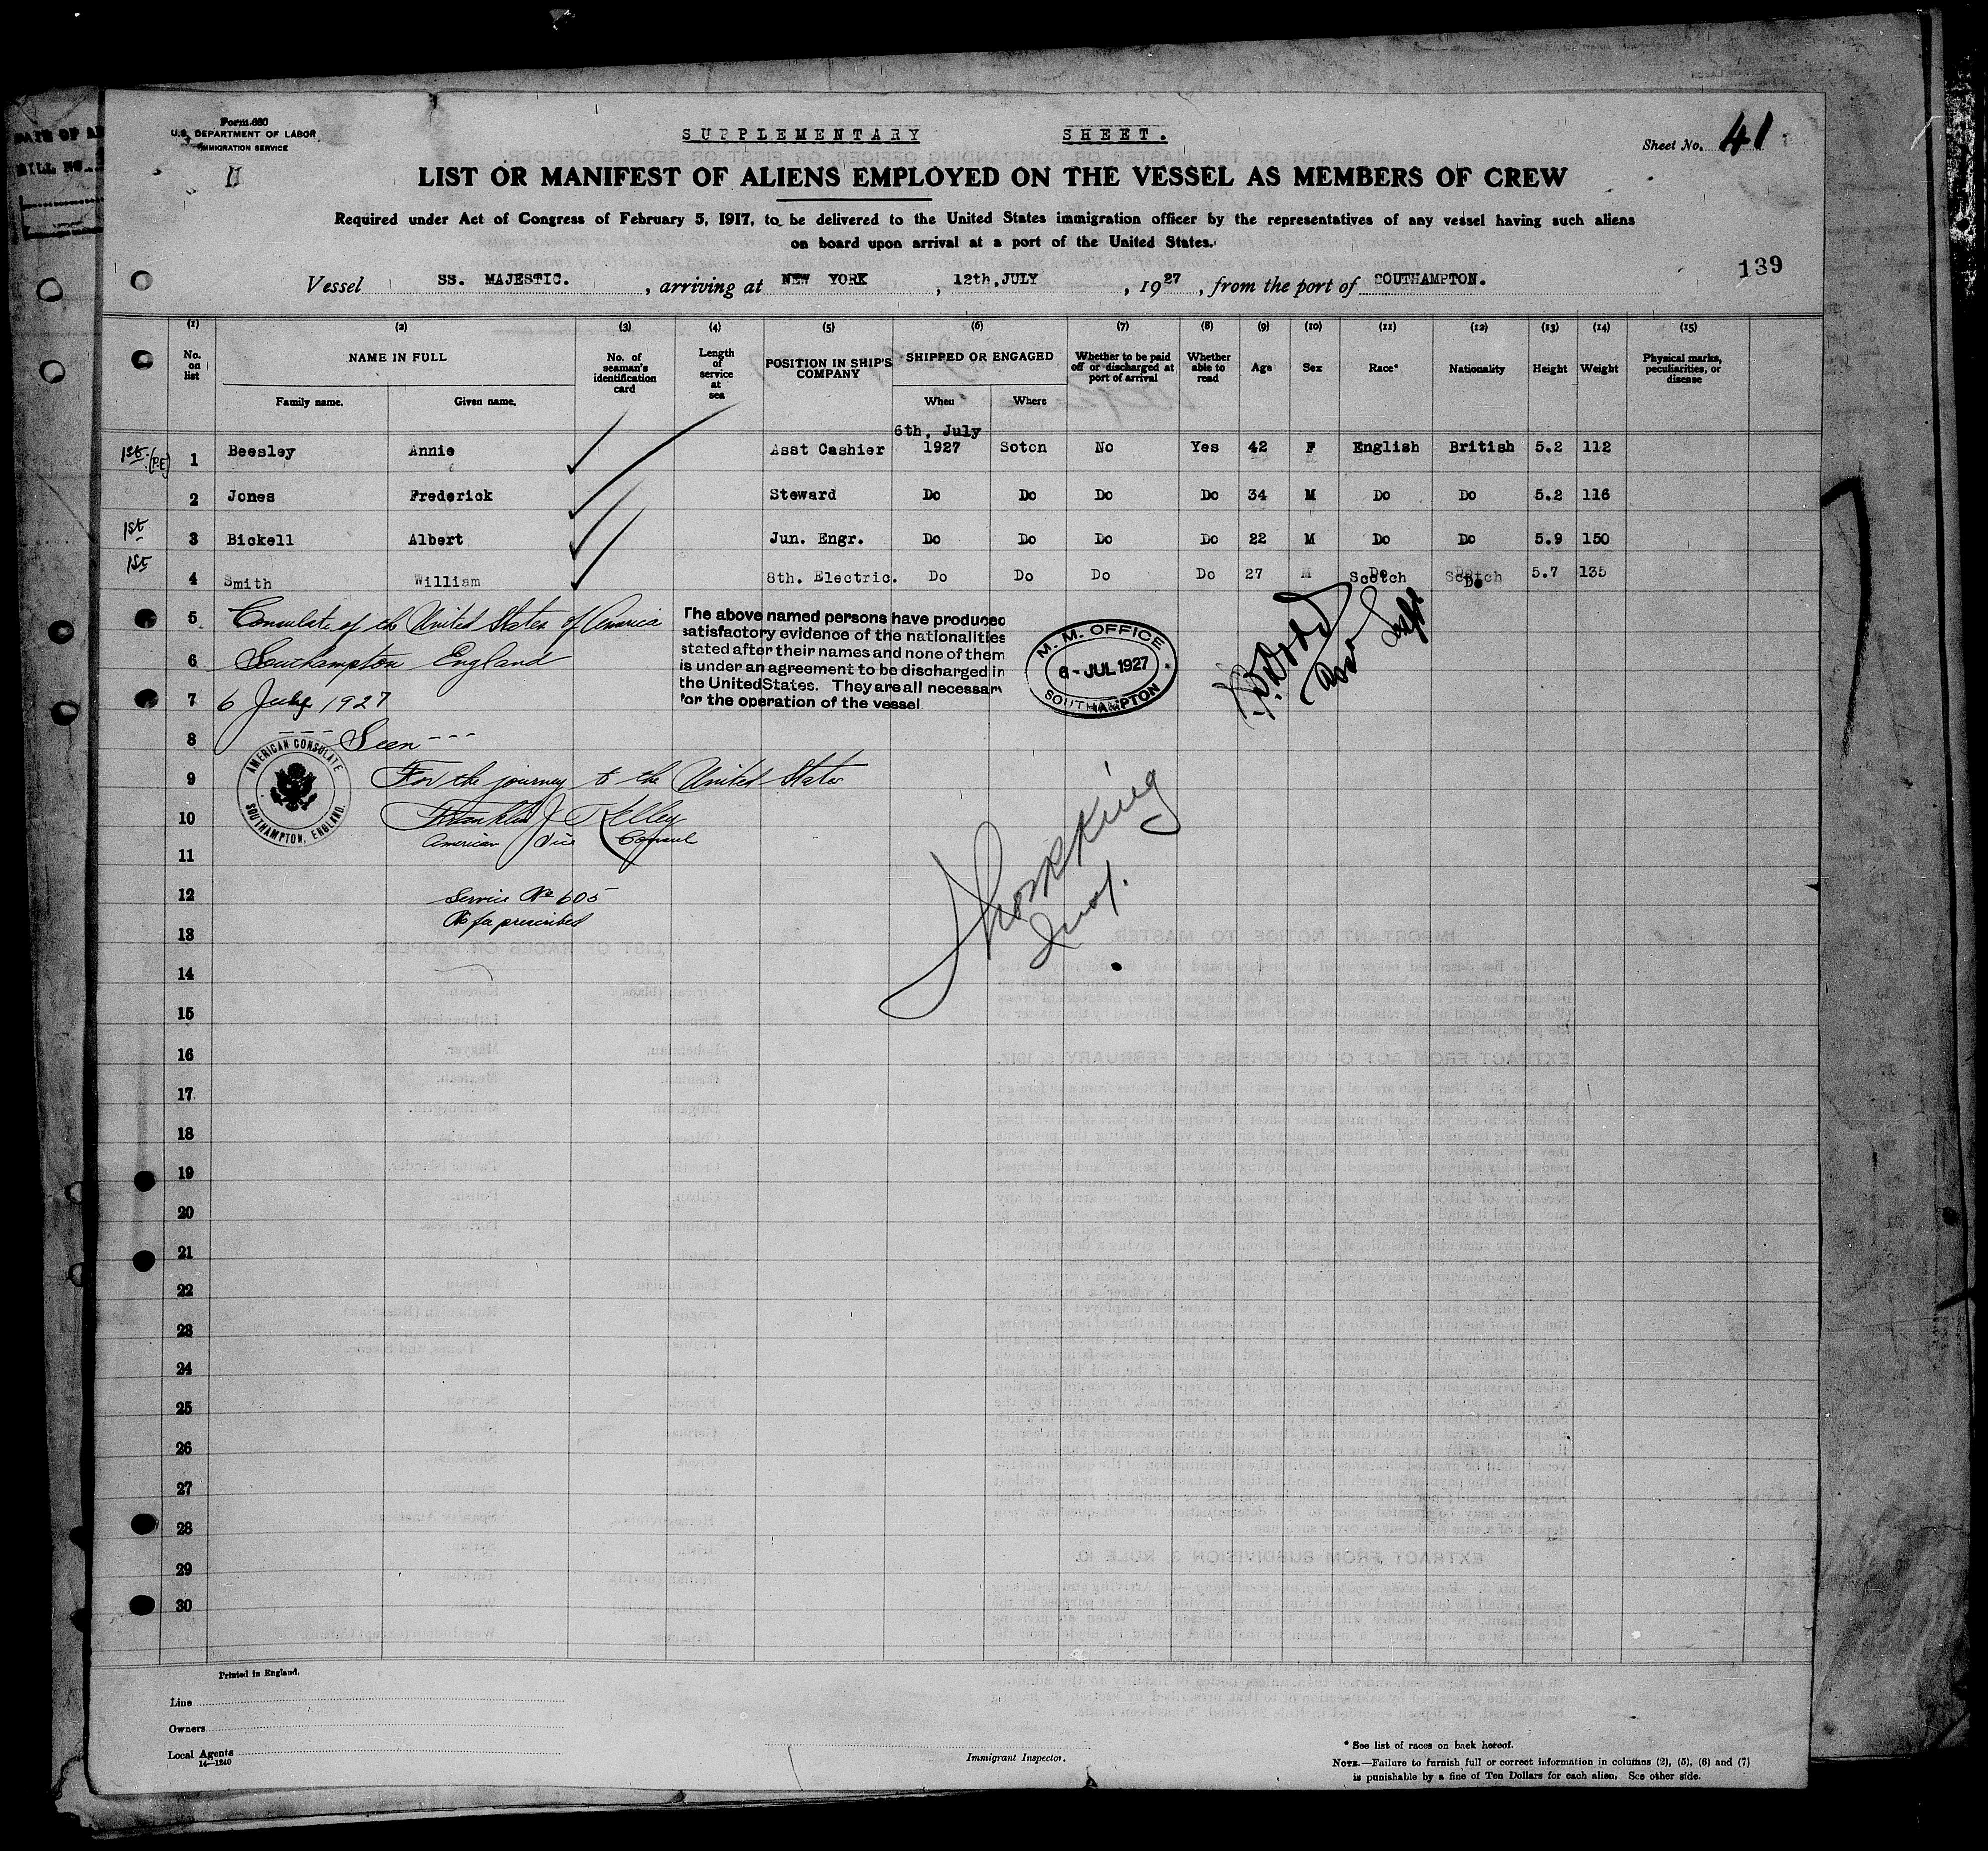 DATE OF
BILL NO.
Form 680
U.S. DEPARTMENT OF LABOR
IMMIGRATION SERVICE
SUPPLEMENTARY SHEET.
Sheet No. 41
LIST OR MANIFEST OF ALIENS EMPLOYED ON THE VESSEL AS MEMBERS OF CREW
Required under Act of Congress of February 5, 1917, to be delivered to the United States immigration officer by the representatives of any vessel having such aliens
on board upon arrival at a port of the United States.
139
Vessel SS. MAJESTIC. , arriving at NEW YORK , 12th, JULY , 1927 , from the port of SOUTHAMPTON.
(1) (2) (3) (4) (5) (6) (7) (8) (9) (10) (11) (12) (13) (14) (15)
No. on list NAME IN FULL Family name. Given name. No. of seaman's identification card Length of service at sea POSITION IN SHIP'S COMPANY SHIPPED OR ENGAGED When Where Whether to be paid off or discharged at port of arrival Whether able to read Age Sex Race* Nationality Height Weight Physical marks, peculiarities, or disease
6th, July
1st (P.E) 1 Beesley Annie Asst Cashier 1927 Soton No Yes 42 F English British 5.2 112
2 Jones Frederick Steward Do Do Do Do 34 M Do Do 5.2 116
1st 3 Bickell Albert Jun. Engr. Do Do Do Do 22 M Do Do 5.9 150
1st 4 Smith William 8th. Electric. Do Do Do Do 27 M Scotch Do 5.7 135
5 Consulate of the United States of America
6 Southampton England
7 6 July 1927
The above named persons have produced
satisfactory evidence of the nationalities
stated after their names and none of them
is under an agreement to be discharged in
the United States. They are all necessary
for the operation of the vessel
M. M. OFFICE
6 - JUL 1927
SOUTHAMPTON
8 --- Seen ---
AMERICAN CONSULATE
SOUTHAMPTON, ENGLAND.
9 For the journey to the United States
10 Franklin J Kelley
11 American Vice Consul
12 Service No 605
No fee prescribed
13
14
15
16
17
18
19
20
21
22
23
24
25
26
27
28
29
30
Printed in England.
Line
Owners
Local Agents
14—1240
Immigrant Inspector.
* See list of races on back hereof.
NOTE.—Failure to furnish full or correct information in columns (2), (5), (6) and (7)
is punishable by a fine of Ten Dollars for each alien. See other side.